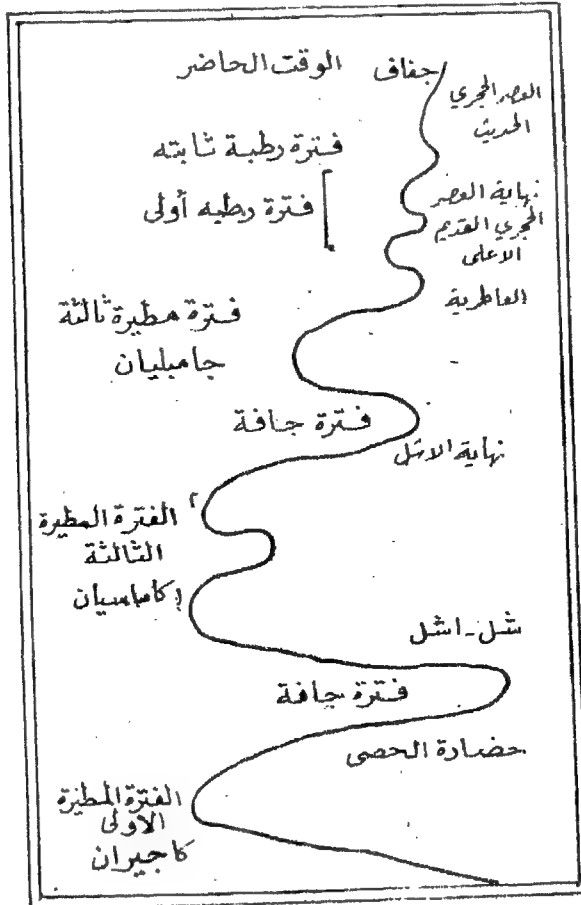 جفاف
الوقت الحاضر
العصر الحجري
الحديث
فترة رطبة ثابته
فترة رطبه أولى
نهاية العصر
الحجري القديم
الاعلى
العاطرية
فترة مطيرة ثالثة
جامبليان
فترة جافة
نهاية الاشل
٢
الفترة المطيرة
الثالثة
كاماسيان
شل - اشل
فترة جافة
حضارة الحصى
الفترة المطيرة
الاولى
كاجيران